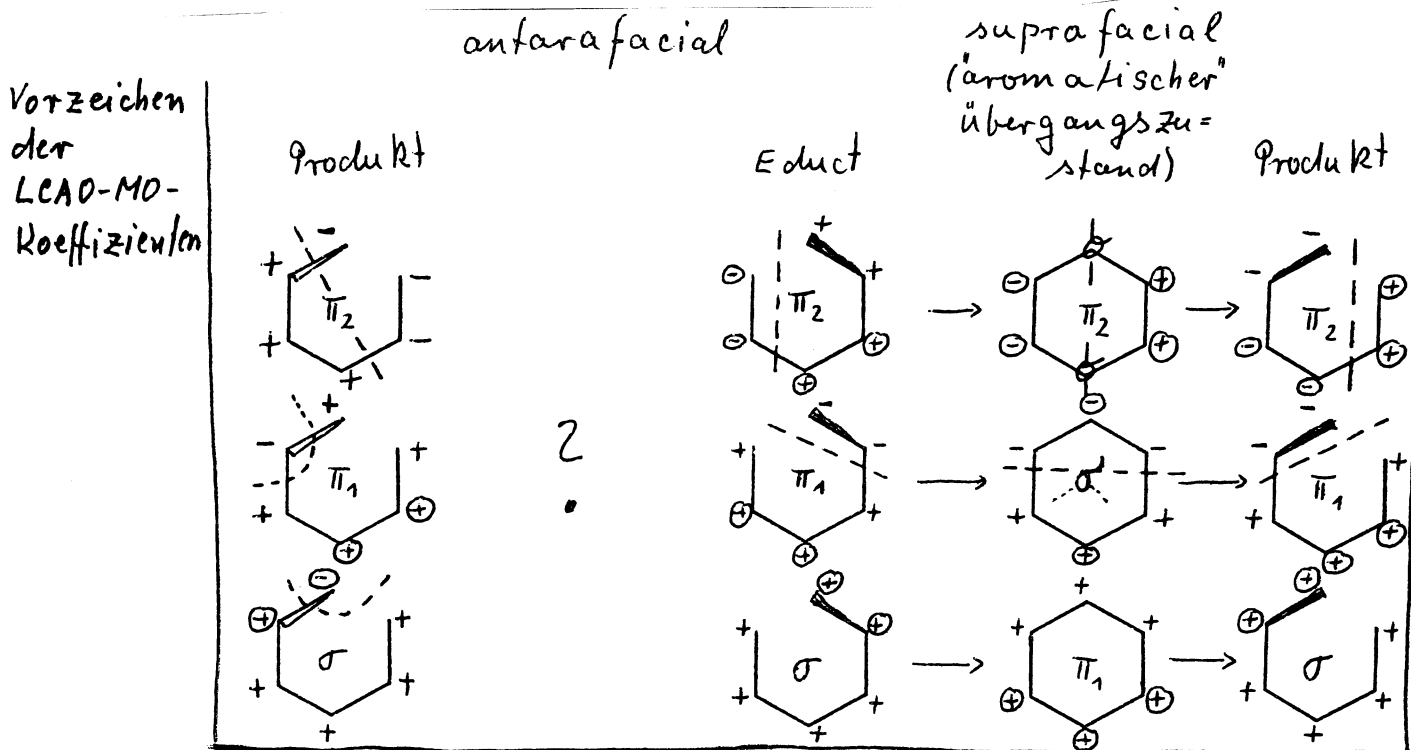 antarafacial
suprafacial
("aromatischer"
übergangszu=
stand)
Vorzeichen
der
LCAO-MO-
Koeffizienten
Produkt
Educt
Produkt
+ - - + - + +
π₂
⊖ + + ⊖ ⊕ ⊕
π₂
⊖ ⊕ ⊖ ⊕
π₂
- - ⊕ ⊖ ⊖ ⊕
π₂
- + + + ⊕ ⊕
π₁
?
+ - - ⊕ + ⊕
π₁
⊖ - - + + ⊕
σ
- - + + ⊕ ⊕
π₁
⊕ ⊖ + + + +
σ
+ ⊕ ⊕ + + +
σ
+ + + ⊕ ⊕ ⊕
π₁
⊕ ⊕ + + + +
σ